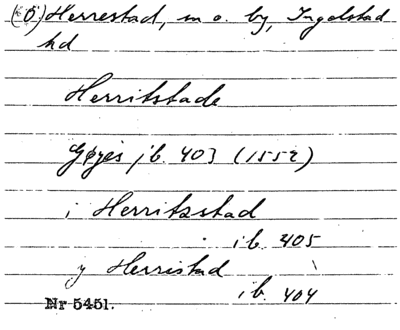 (Ö.) Herrestad, sn o. by, Ingelstad
hd
Herritstade
Gøyes jb. 403 (1552)
i Herritzstad
ib. 405
y Herristad
ib. 404
Nr 5451.